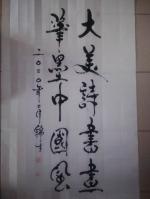 大美詩書畫
筆墨中國風
二〇二〇年